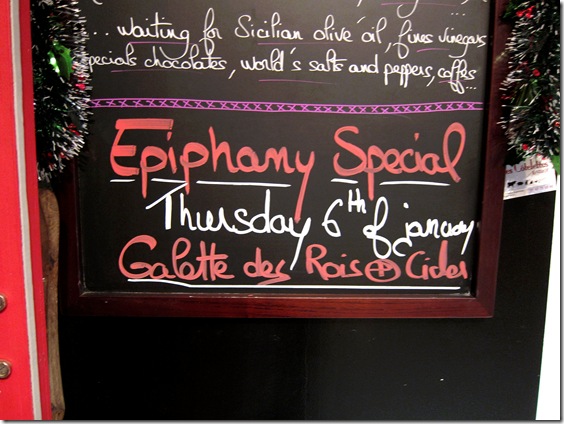 ... waiting for Sicilian olive oil, fines vinegars
specials chocolates, world's salts and peppers, coffes...
Epiphany Special
Thursday 6th of january
Galette des Rois + Cider